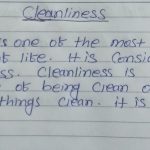 Cleanliness
is one of the most
of life. It is Consid
ss. Cleanliness is
of being clean o
things clean. it is